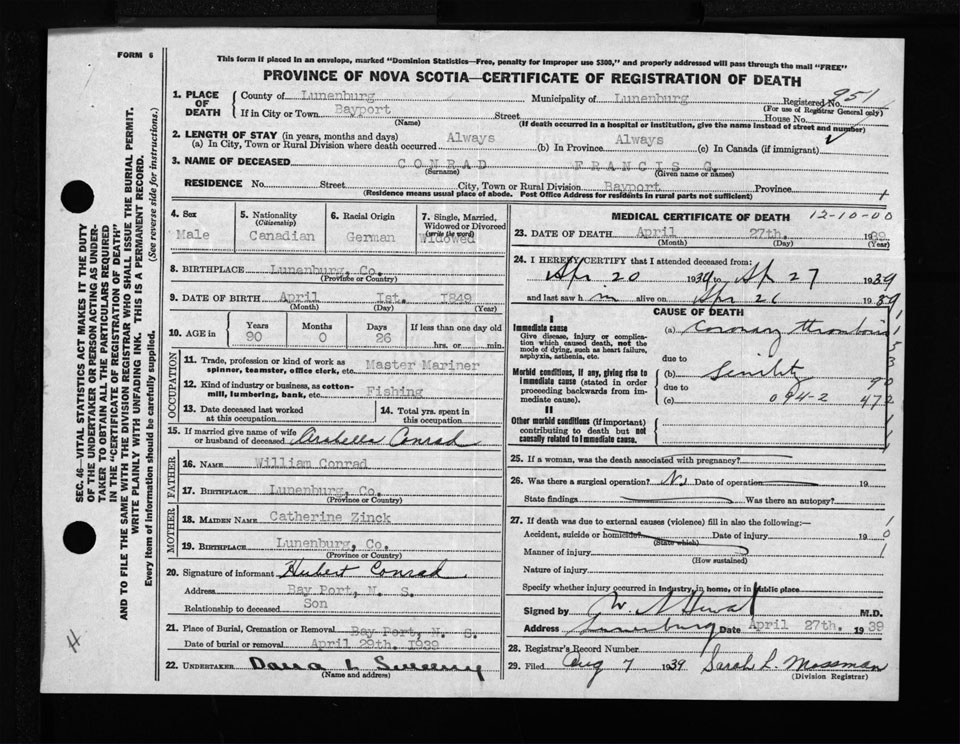 FORM 6
This form if placed in an envelope, marked "Dominion Statistics—Free, penalty for improper use $300," and properly addressed will pass through the mail "FREE"
PROVINCE OF NOVA SCOTIA—CERTIFICATE OF REGISTRATION OF DEATH
1. PLACE OF DEATH County of Lunenburg Municipality of Lunenburg Registered No. 951
(For use of Registrar General only)
If in City or Town Bayport Street House No.
(Name) (If death occurred in a hospital or institution, give the name instead of street and number)
2. LENGTH OF STAY (in years, months and days)
(a) In City, Town or Rural Division where death occurred Always (b) In Province Always (c) In Canada (if immigrant)
3. NAME OF DECEASED CONRAD FRANCIS G.
(Surname) (Given name or names)
RESIDENCE No. Street City, Town or Rural Division Bayport Province
(Residence means usual place of abode. Post Office Address for residents in rural parts not sufficient)
4. Sex Male
5. Nationality (Citizenship) Canadian
6. Racial Origin German
7. Single, Married, Widowed or Divorced (write the word) Widowed
8. BIRTHPLACE Lunenburg, Co.
(Province or Country)
9. DATE OF BIRTH April 1st. 1849
(Month) (Day) (Year)
10. AGE in Years Months Days If less than one day old
90 0 26 hrs. or min.
OCCUPATION
11. Trade, profession or kind of work as spinner, teamster, office clerk, etc. Master Mariner
12. Kind of industry or business, as cotton-mill, lumbering, bank, etc. Fishing
13. Date deceased last worked at this occupation
14. Total yrs. spent in this occupation
15. If married give name of wife or husband of deceased Arabella Conrad
FATHER
16. NAME William Conrad
17. BIRTHPLACE Lunenburg, Co.
(Province or Country)
MOTHER
18. MAIDEN NAME Catherine Zinck
19. BIRTHPLACE Lunenburg, Co.
(Province or Country)
20. Signature of informant Hubert Conrad
Address Bay Port, N. S.
Relationship to deceased Son
21. Place of Burial, Cremation or Removal Bay Port, N. S.
Date of burial or removal April 29th. 1939
22. UNDERTAKER Dana L Sweeny
(Name and address)
MEDICAL CERTIFICATE OF DEATH 12-10-00
23. DATE OF DEATH April 27th. 1939
(Month) (Day) (Year)
24. I HEREBY CERTIFY that I attended deceased from:
Apr. 20 1939 to Ap 27 1939
and last saw h im alive on Apr 26 1939
CAUSE OF DEATH
I
Immediate cause
Give disease, injury or complication which caused death, not the mode of dying, such as heart failure, asphyxia, asthenia, etc.
(a) Coronary thrombosis
due to
Morbid conditions, if any, giving rise to immediate cause (stated in order proceeding backwards from immediate cause).
(b) Senility
due to
(c) 094-2
II
Other morbid conditions (if important) contributing to death but not causally related to immediate cause.
25. If a woman, was the death associated with pregnancy?
26. Was there a surgical operation? No Date of operation 19
State findings Was there an autopsy?
27. If death was due to external causes (violence) fill in also the following:—
Accident, suicide or homicide? Date of injury 19
(State which)
Manner of injury
(How sustained)
Nature of injury
Specify whether injury occurred in industry, in home, or in public place
Signed by M.D.
Address Lunenburg Date April 27th. 1939
28. Registrar's Record Number
29. Filed Aug 7 1939 Sarah L. Mossman
(Division Registrar)
SEC. 46—VITAL STATISTICS ACT MAKES IT THE DUTY
OF THE UNDERTAKER OR PERSON ACTING AS UNDER-
TAKER TO OBTAIN ALL THE PARTICULARS REQUIRED
IN THE "CERTIFICATE OF REGISTRATION OF DEATH"
AND TO FILE THE SAME WITH THE DIVISION REGISTRAR WHO SHALL ISSUE THE BURIAL PERMIT.
WRITE PLAINLY WITH UNFADING INK. THIS IS A PERMANENT RECORD.
Every item of information should be carefully supplied. (See reverse side for instructions.)
H